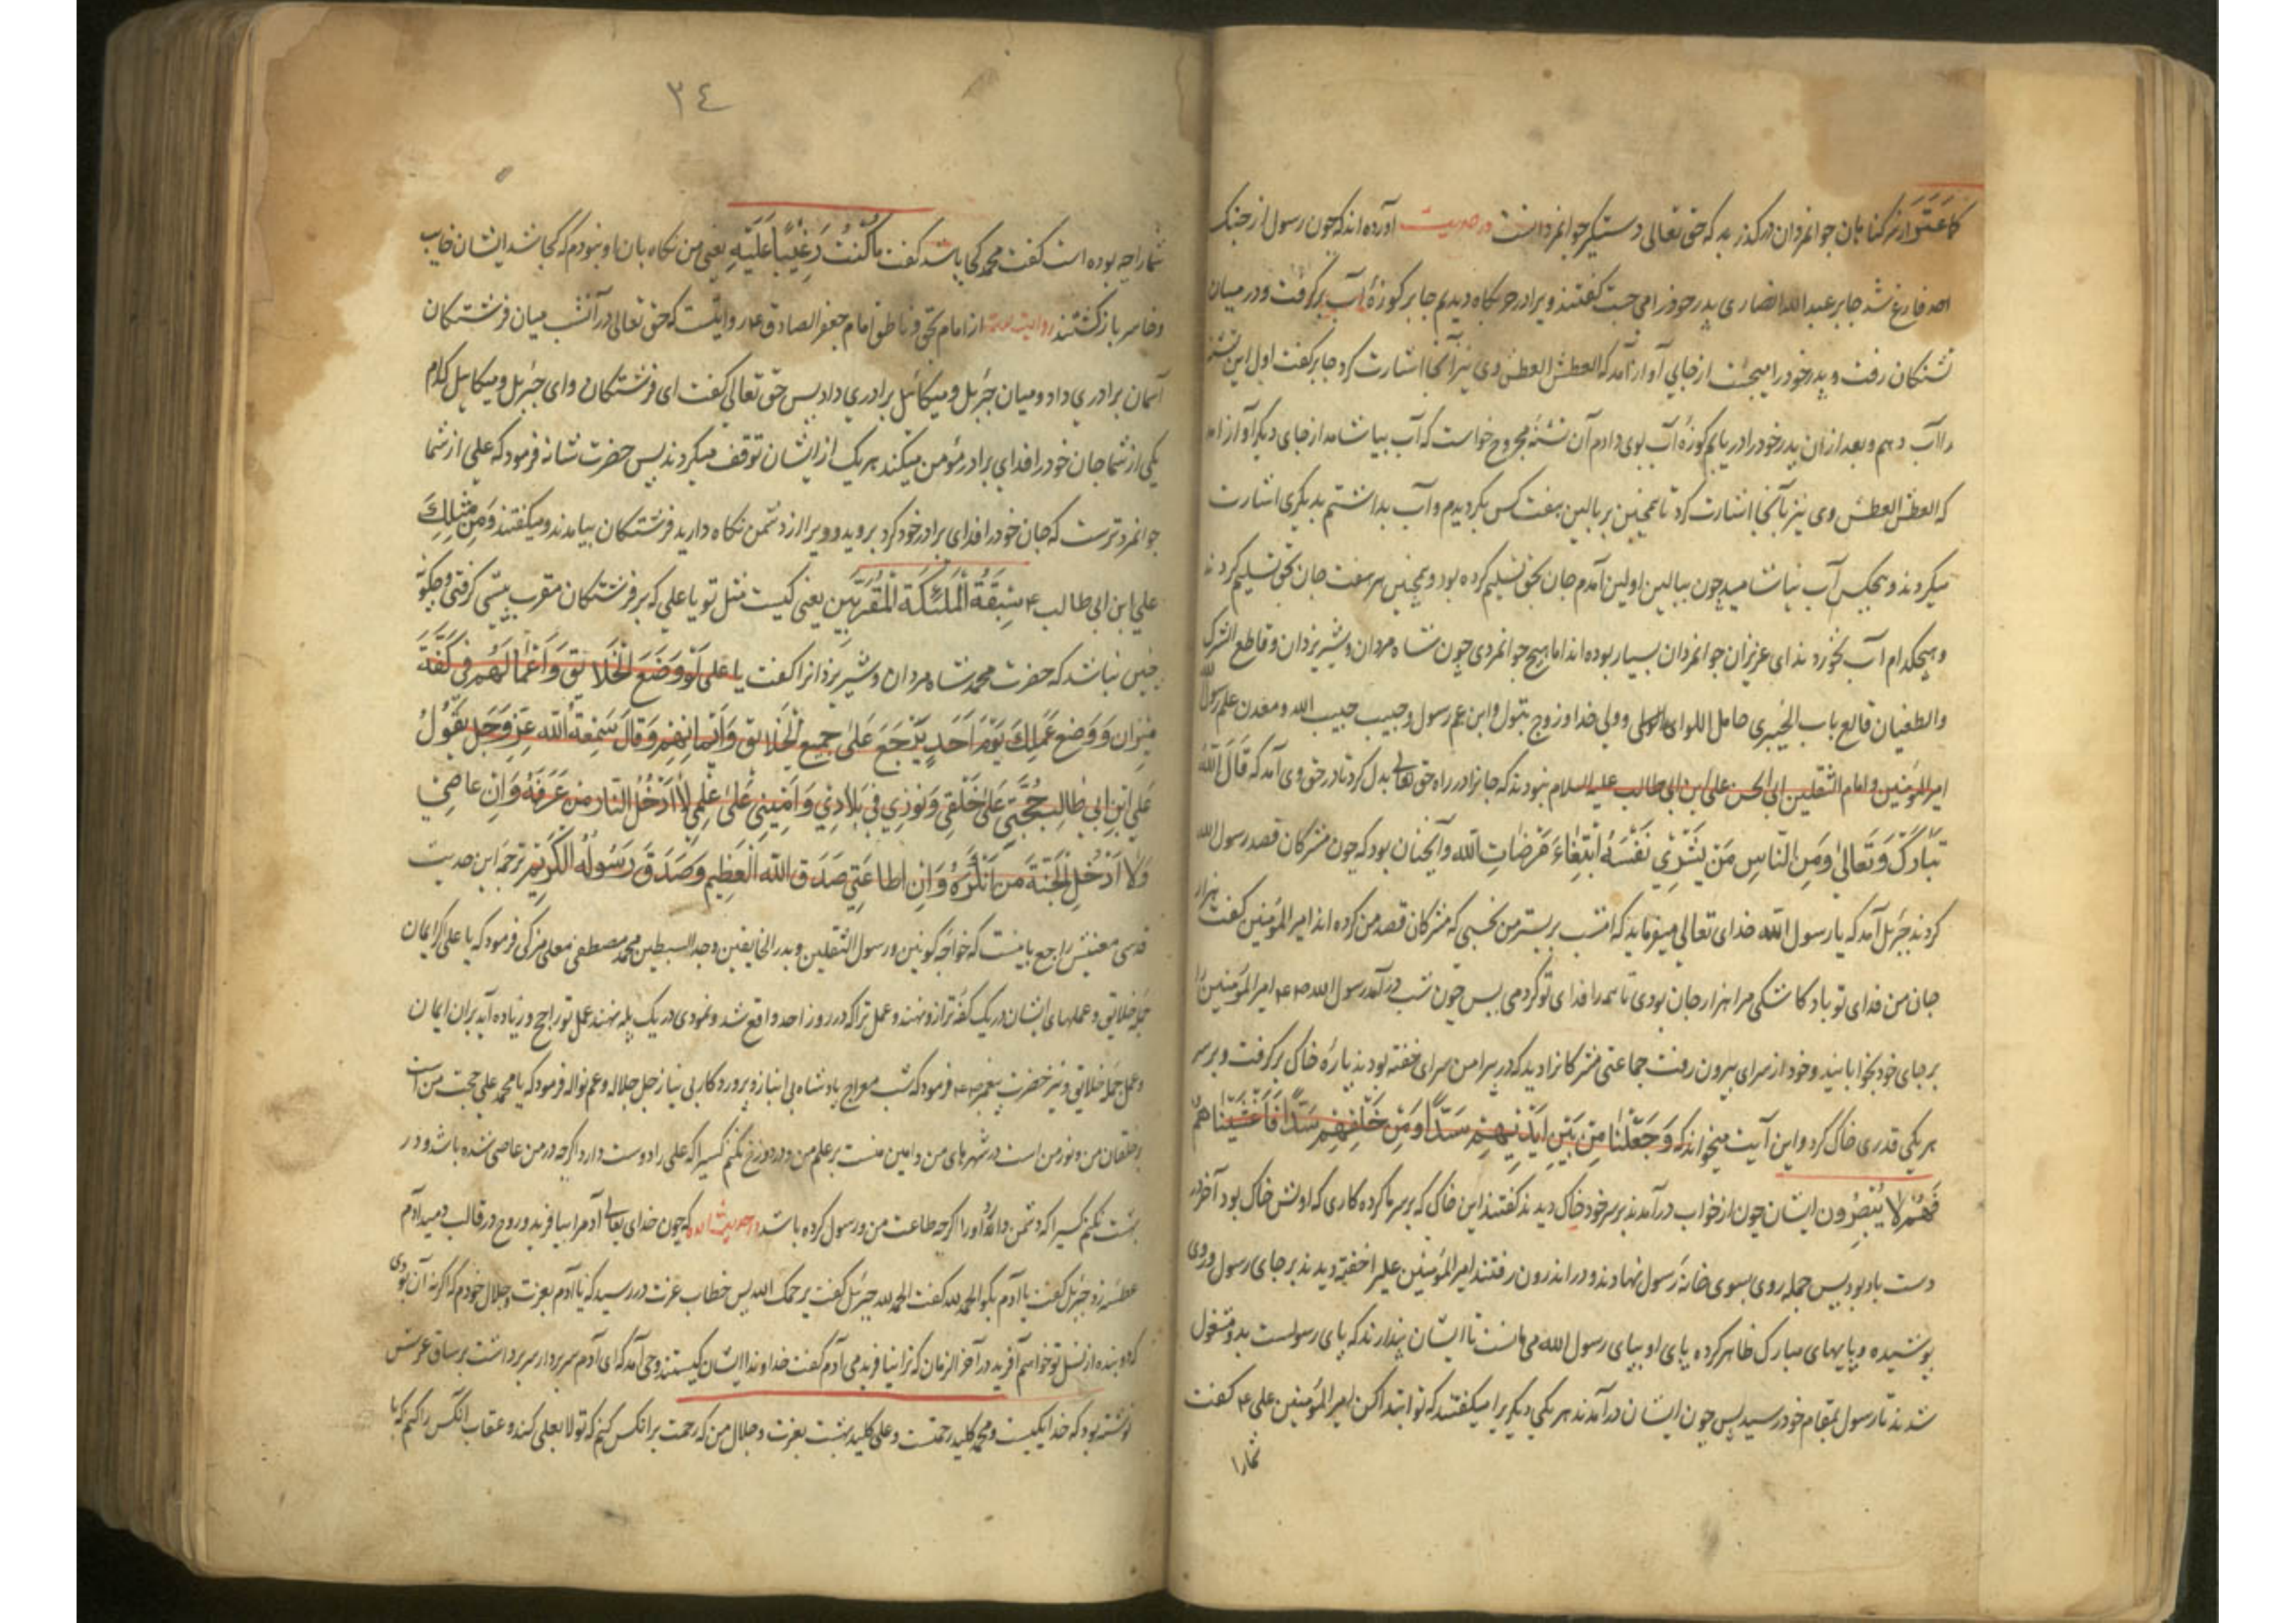 کلما عثر از سر گناهان جوانمردان درگذرید که حق تعالی دستگیر جوانمردانست در حدیث آورده اند که چون رسول از جنک
احد فارغ شد جابر عبد الله انصاری پدر خود را می جست گفتند ویرا در حربگاه دیدیم جابر کوزهٔ آب برگرفت و در میان
تشنکان رفت و پدر خود را میجست از جایی آواز آمد که العطش العطش وی نیز آنجا اشارت کرد جابر گفت اول این تشنه
را آب دهم و بعد از ان پدر خود را دریابم کوزهٔ آب بوی دادم آن تشنهٔ مجروح خواست که آب بیاشامد از جای دیگر آواز آمد
که العطش العطش وی نیز بآنجا اشارت کرد تا همچنین بر بالین هفت کس بگردیدم و آب بداشتم بدیگری اشارت
میکردند و هیچکس آب نیاشامید چون ببالین اولین آمدم جان بحق تسلیم کرده بود و همچنین هر هفت جان بحق تسلیم کردند
و هیچکدام آب نخوردند ای عزیزان جوانمردان بسیار بوده اند اما هیچ جوانمردی چون شاه مردان و شیر یزدان و قاطع الشرک
والطغیان قالع باب الخیبری حامل اللوای ولی خدا و زوج بتول و ابن عم رسول و حبیب حبیب الله و معدن علم رسول الله
امیر المؤمنین و امام الثقلین ابی الحسن علی بن ابی طالب علیه السلام نبودند که جانرا در راه حق تعالی بذل کرد تا در حق وی آمد که قَالَ اللّٰه
تَبَارَکَ وَتَعَالیٰ وَمِنَ النَّاسِ مَن یَشْرِی نَفْسَهُ ابْتِغَاءَ مَرْضَاتِ اللّٰه و آنچنان بود که چون مشرکان قصد رسول الله
کردند جبرئیل آمد که یا رسول الله خدای تعالی میفرماید که امشب بر بستر من نخسبی که مشرکان قصد من کرده اند امیر المؤمنین گفت هزار
جان من فدای تو باد کاشکی مرا هزار جان بودی تا همه را فدای تو کردمی پس چون شب درآمد رسول الله امیر المؤمنین را
بر جای خود بخوابانید و خود از سرای بیرون رفت جماعتی مشرکانرا دید که در پیرامن سرای خفته بودند پارهٔ خاک برگرفت و بر سر
هر یکی قدری خاک کرد و این آیت میخواند که وَجَعَلْنَا مِن بَیْنِ اَیْدِیهِمْ سَدًّا وَمِنْ خَلْفِهِمْ سَدًّا فَاَغْشَیْنَاهُمْ
فَهُمْ لَا یُبْصِرُون ایشان چون از خواب درآمدند بر سر خود خاک دیدند گفتند این خاک که بر سر ما کرده کاری که اولش خاک بود آخر در
دست باد بود پس جمله روی بسوی خانهٔ رسول نهادند و در اندرون رفتند امیر المؤمنین علیرا خفته دیدند بر جای رسول و روی
پوشیده و پایهای مبارک ظاهر کرده پای او بپای رسول الله می مانست تا ایشان پندارند که پای رسولست بدو مشغول
شدند تا رسول بمقام خود رسید پس چون ایشان درآمدند هر یکی دیگریرا میگفتند که تو ابتدا کن امیر المؤمنین علی گفت
شمارا
٣٤
شمارا چه بوده است گفت محمد کجا باشد گفت مَا کُنْتُ رَقِیبًا عَلَیْهِ یعنی من نگاه بان او نبودم که کجا شد ایشان خایب
و خاسر بازگشتند روایت از امام بحق و ناطق امام جعفر الصادق روایتست که حق تعالی در آنشب میان فرشتکان
آسمان برادری داد و میان جبرئیل و میکائیل برادری داد پس حق تعالی گفت ای فرشتکان و ای جبرئیل و میکائیل کدام
یکی از شما جان خود را فدای برادر مؤمن میکند هر یک از ایشان توقف میکردند پس حضرت فرمود که علی از شما
جوانمردترست که جان خود را فدای برادر خود کرد بروید و ویرا از دشمن نگاه دارید فرشتکان بیامدند و میگفتند وَمَن مِثْلُکَ
علی ابن ابی طالب سَبَقَهُ الْمَلٰئِکَةِ الْمُقَرَّبِین یعنی کیست مثل تو یا علی که بر فرشتکان مقرب پیشی گرفتی و چگونه
چنین نباشد که حضرت محمد شاه مردان و شیر یزدانرا گفت یا علی لَوْ وُضَعَ الْخَلَایِق وَاَعْمَالَهُم فی کَفَّة
مِیزان وَوُضِعَ عَمَلُکَ یَوْمَ اَحَدٍ یَرْجَحُ عَلیٰ جَمِیعِ الْخَلَایِق وَاَیْمَانِهِم وَقَالَ سَمِعْتُ اللّٰه عِزَّ وَجَلَّ یَقُولُ
عَلِیّ ابْنِ اَبِی طَالِب حُجَّتِی عَلیٰ خَلْقِی وَنُورِی فِی بِلَادِی وَاَمِینِی عَلیٰ عِلْمِی لَا اُدْخِلُ النَّار مَن عَرَفَهُ وَاِن عَاصِنِی
وَلَا اُدْخِلُ الْجَنَّةَ مَن اَنْکَرَهُ وَاِن اَطَاعَنِی صَدَقَ اللّٰه الْعَظِیم وَصَدَقَ رَسُولُه الْکَرِیم ترجمهٔ این حدیث
قدسی معنیش راجع باینست که خواجهٔ کونین و رسول الثقلین و بدر الخافقین و جد السبطین محمد مصطفی معلی مزکی فرمود که یا علی اگر ایمان
جمله خلایق و عملهای ایشان در یک کفهٔ ترازو نهند و عمل ترا که در روز احد واقع شد و نمودی در یک پله نهند عمل تو راجح و زیاده آید بر ان ایمان
و عمل جمله خلایق و نیز حضرت پیغمبر فرمود که شب معراج پادشاه بی انباز و پروردکار بی نیاز جل جلاله و عم نواله فرمود که یا محمد علی حجت من است
بر خلقان من و نور من است در شهرهای من و امین منست بر علم من و در دوزخ نکنم کسیرا که علی را دوست دارد اگرچه در من عاصی شده باشد و در
بهشت نکنم کسیرا که دشمن دارد او را اگرچه طاعت من و رسول کرده باشد در حدیث آمده که چون خدای تعالی آدم را بیافرید و روح در قالب دمید آدم
عطسه زد جبرئیل گفت یا آدم بگو الحمد لله گفت الحمد لله جبرئیل گفت یرحمک الله پس خطاب عزت در رسید که یا آدم بعزت و جلال خودم که اگر نه آن بودی
که دو بنده از نسل تو خواهم آفرید در آخر الزمان که ترا نیافریدمی آدم گفت خداوندا ایشان کیستند وحی آمد که ای آدم سر بردار سر برداشت بر ساق عرش
نوشته بود که خدا یکیست و محمد کلید رحمتست و علی کلید بهشت بعزت و جلال من که رحمت بر انکس کنم که تولا بعلی کند و عقاب انکس را کنم که با